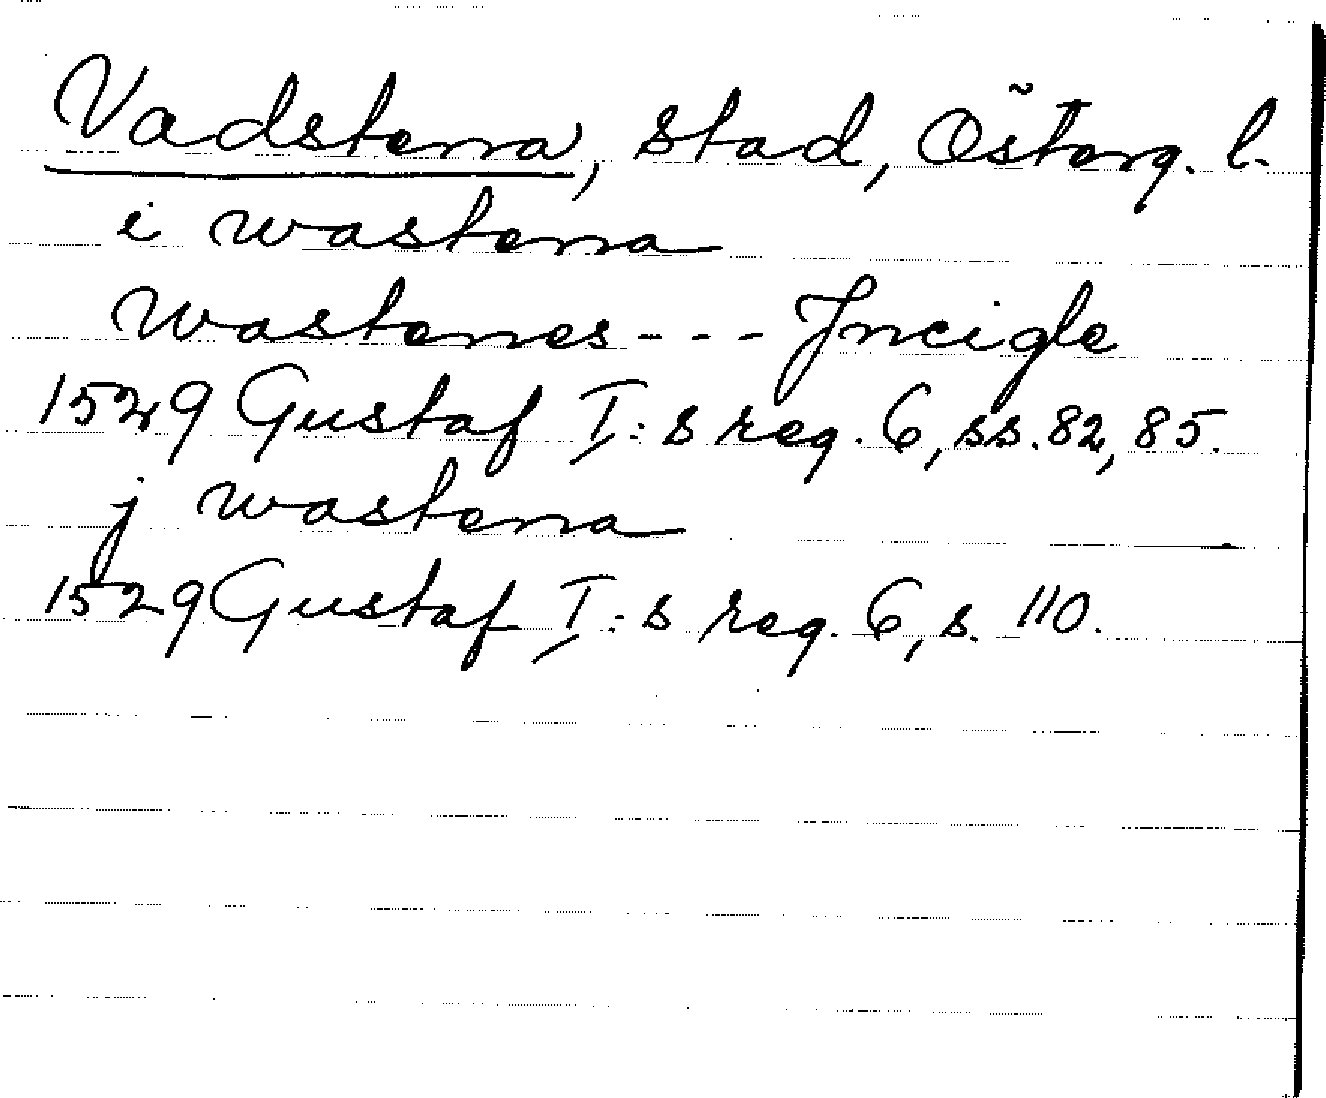 Vadstena, stad, Österg. l.
i wastena
wastenes --- Jncigle
1529 Gustaf I:s reg. 6, ss. 82, 85.
j wastena
1529 Gustaf I:s reg. 6, s. 110.